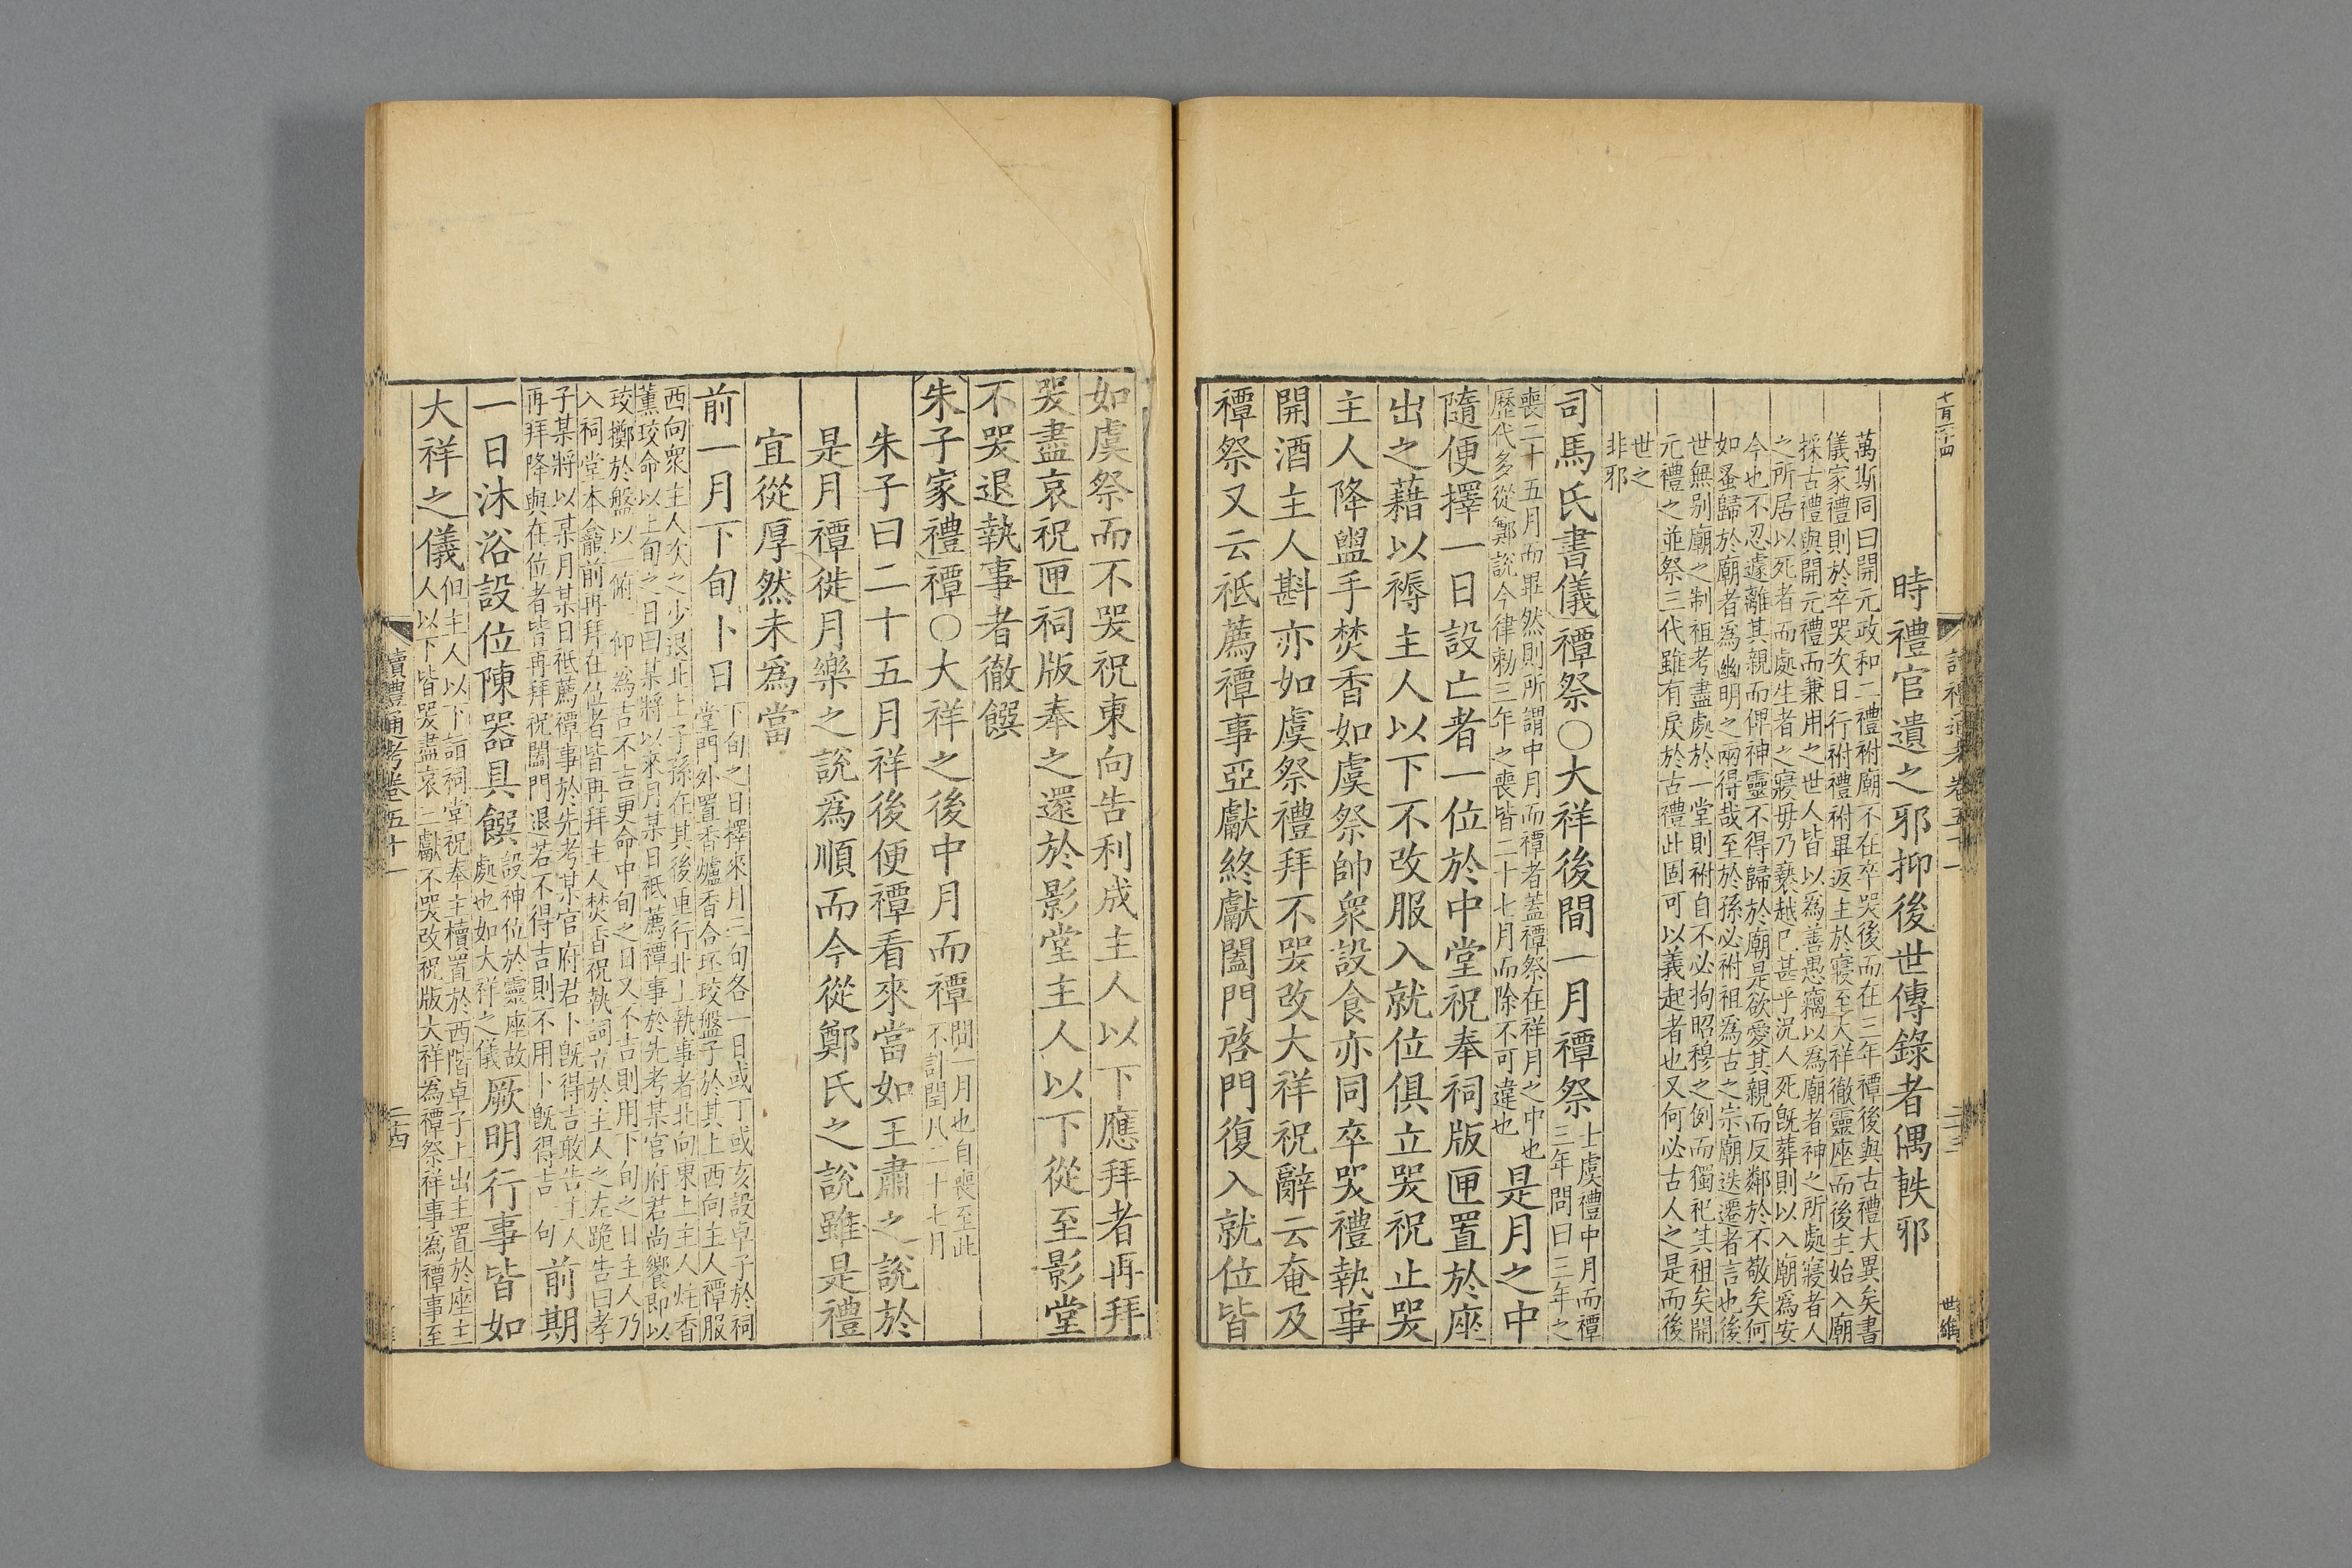 時禮官遺之邪抑後世傳錄者偶軼邪
萬斯同曰開元政和二禮祔廟不在卒哭後而在三年禫後與古禮大異矣書
儀家禮則於卒哭次日行祔禮祔畢返主於寢至大祥徹靈座而後主始入廟
採古禮與開元禮而兼用之世人皆以為善愚竊以為廟者神之所處寢者人
之所居以死者而處生者之寢毋乃褻越已甚乎況人死旣葬則以入廟為安
今也不忍遽離其親而俾神靈不得歸於廟是欲愛其親而反鄰於不敬矣何
如蚤歸於廟者為幽明之兩得哉至於孫必祔祖為古之宗廟迭遷者言也後
世無别廟之制祖考盡處於一堂則祔自不必拘昭穆之例而獨祀其祖矣開
元禮之並祭三代雖有戾於古禮此固可以義起者也又何必古人之是而後
世之
非邪
司馬氏書儀禫祭○大祥後間一月禫祭
士虞禮中月而禫
三年問曰三年之
喪二十五月而畢然則所謂中月而禫者蓋禫祭在祥月之中也
歷代多從鄭說今律勅三年之喪皆二十七月而除不可違也
是月之中
隨便擇一日設亡者一位於中堂祝奉祠版匣置於座
出之藉以褥主人以下不改服入就位俱立哭祝止哭
主人降盥手焚香如虞祭帥衆設食亦同卒哭禮執事
開酒主人斟亦如虞祭禮拜不哭改大祥祝辭云奄及
禫祭又云祗薦禫事亞獻終獻闔門啓門復入就位皆
如虞祭而不哭祝東向告利成主人以下應拜者再拜
哭盡哀祝匣祠版奉之還於影堂主人以下從至影堂
不哭退執事者徹饌
朱子家禮禫○大祥之後中月而禫
間一月也自喪至此
不計閏凡二十七月
朱子曰二十五月祥後便禫看來當如王肅之說於
是月禫徙月樂之說爲順而今從鄭氏之說雖是禮
宜從厚然未爲當
前一月下旬卜日
下旬之日擇來月三旬各一日或丁或亥設卓子於祠
堂門外置香爐香合珓盤子於其上西向主人禫服
西向衆主人次之少退北上子孫在其後重行北上執事者北向東上主人炷香
薰珓命以上旬之日曰某將以來月某日祗薦禫事於先考某官府君尚饗即以
珓擲於盤以一俯一仰為吉不吉更命中旬之日又不吉則用下旬之日主人乃
入祠堂本龕前再拜在位者皆再拜主人焚香祝執詞立於主人之左跪告曰孝
子某將以某月某日祗薦禫事於先考某官府君卜旣得吉敢告主人
再拜降與在位者皆再拜祝闔門退若不得吉則不用卜旣得吉一句
前期
一日沐浴設位陳器具饌
設神位於靈座故
處也如大祥之儀
厥明行事皆如
大祥之儀
但主人以下詣祠堂祝奉主櫝置於西階卓子上出主置於座主
人以下皆哭盡哀三獻不哭改祝版大祥為禫祭祥事為禫事至
讀禮通考卷五十一
二十四